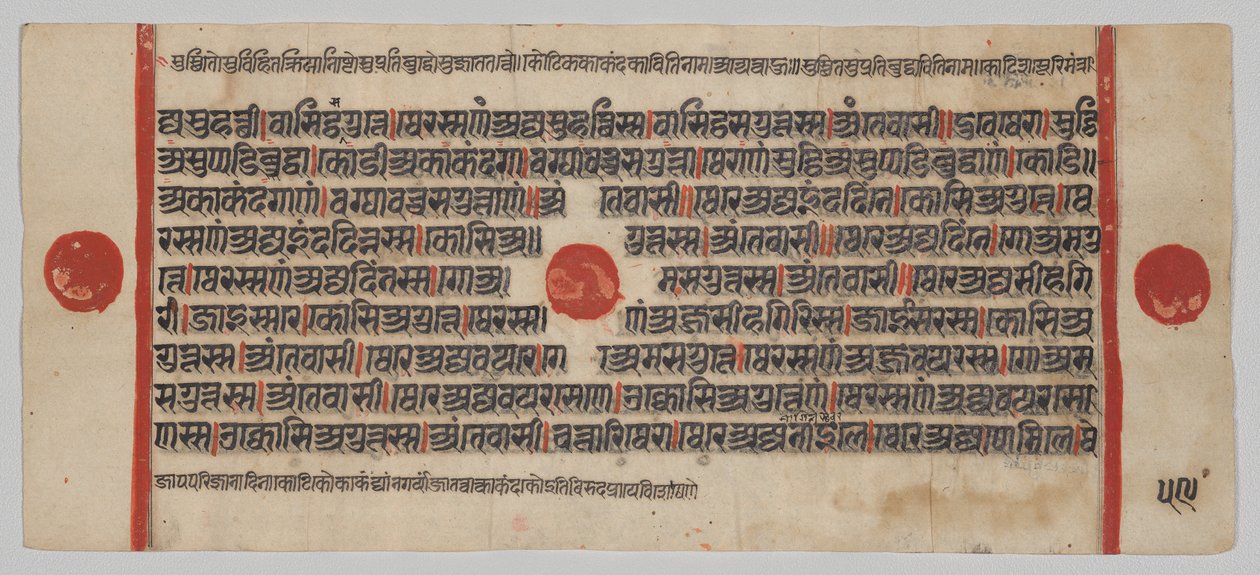 सुस्थितौसुविहितक्रियानिष्ठौसुप्रतिबुद्धौसुज्ञाततत्वौ॥कौटिककाकंदकावितिनामअन्येत्वाहुः॥सुस्थितसुप्रतिबुद्धावितिनाम॥कोटिशःसूरिमंत्र
द्यसुहत्थी।वासिट्ठसगुत्ते।थेरस्सणंअद्यसुहत्थिस्स।वासिट्ठसगुत्तस्स।अंतेवासी॥दुवेथेरा।सुट्ठि
असुपडिबुद्धा।कोडीअकाकंदगा।वग्घावच्चसगुत्ता।थेराणंसुट्ठिअसुपडिबुद्धाणं।कोडि॥
अकाकंदगाणं।वग्घावच्चसगुत्ताणं॥अंतेवासी॥थेरेअद्यइंददिन्ने।कोसिअगुत्ते।थे
रस्सणंअद्यइंददिन्नस्स।कोसिअ॥गुत्तस्स।अंतेवासी॥थेरेअद्यदिन्ने।गोअमगु
त्ते।थेरस्सणंअद्यदिन्नस्स।गोअ।मसगुत्तस्स।अंतेवासी॥थेरेअद्यसीहगि
री।जाइस्सरे।कोसिअगुत्ते।थेरस्स।णंअज्जसीहगिरिस्स।जाईसरस्स।कोसिअ
गुत्तस्स।अंतेवासी।थेरेअद्यवयरे।गोअमसगुत्ते।थेरस्सणंअज्जवयरस्स।गोअम
सगुत्तस्स।अंतेवासी।थेरेअद्यवयरसेणे।उक्कोसिअगुत्तेणं।थेरस्सणंअद्यवयरसे
णस्स।उक्कोसिअगुत्तस्स।अंतेवासी।चत्तारिथेरा।थेरेअद्यनाइले।थेरेअद्यपोमिले।थे
जापपरिज्ञानादिना।कोटिकौकाकंद्यांनगर्यांजातत्वात्काकंदकौइतिविरुदप्रायंविशेषणं
५९